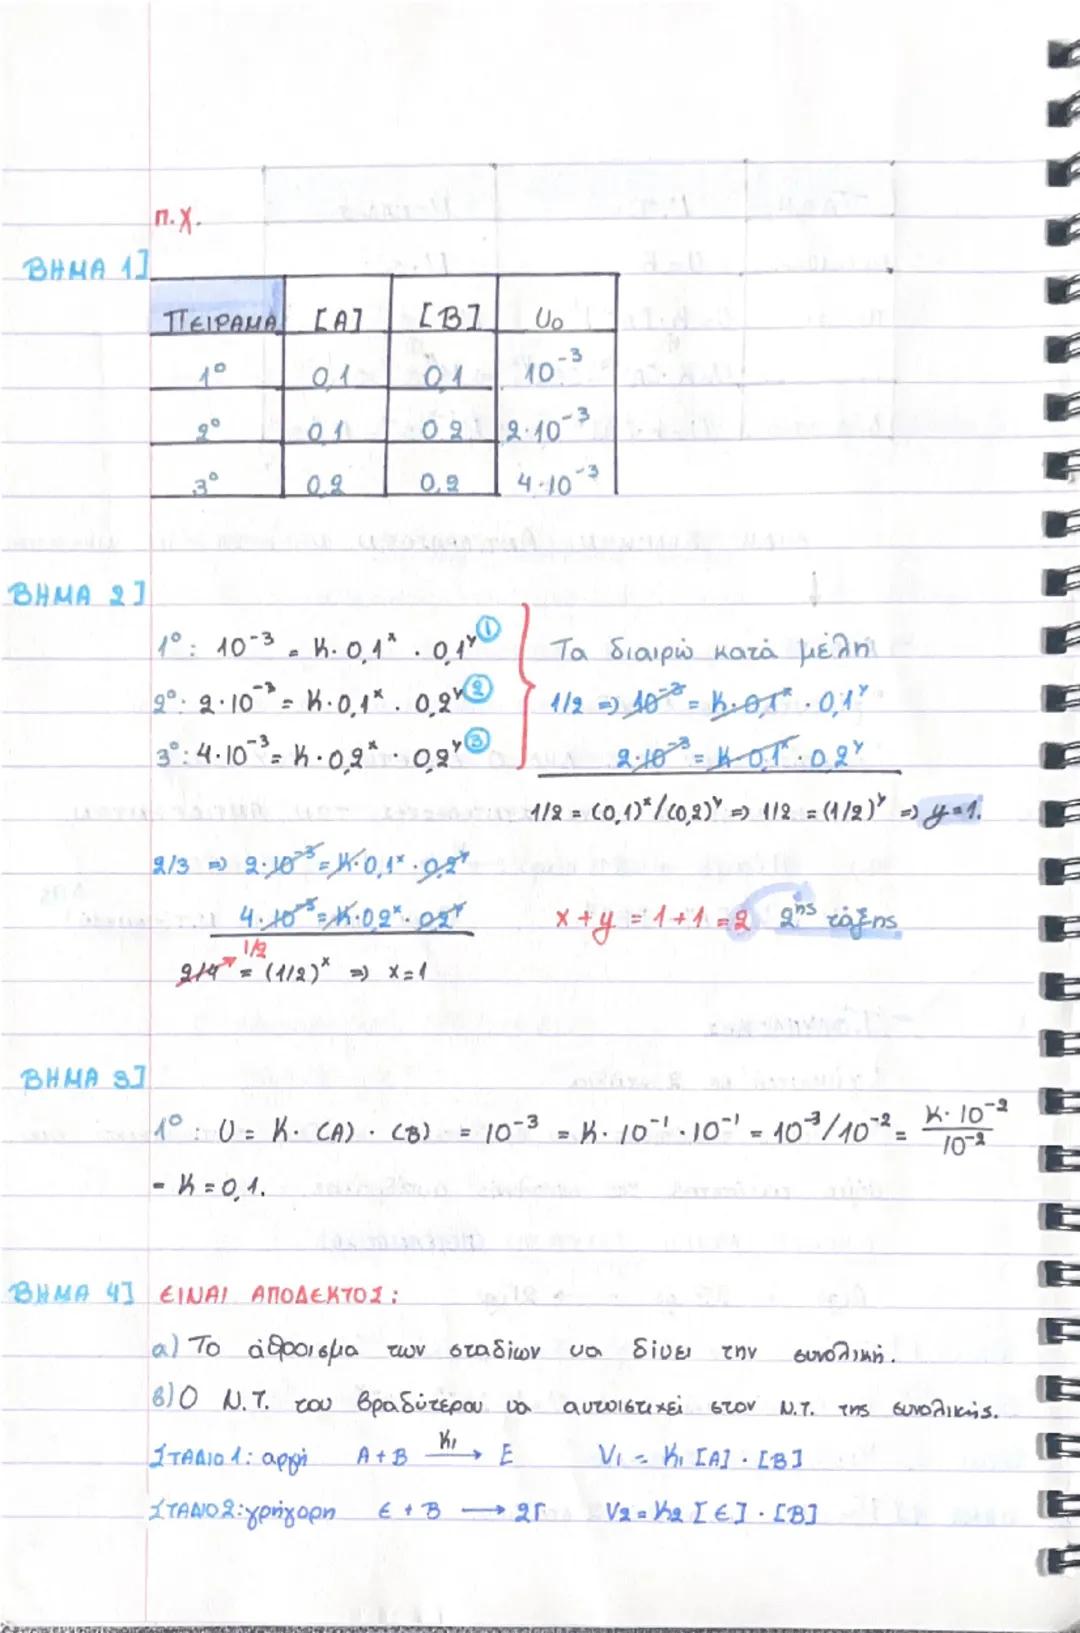 π.χ.
ΒΗΜΑ 1]
ΠΕΙΡΑΜΑ [A] [B] U₀
1° 0,1 0,1 10⁻³
2° 0,1 0,2 2·10⁻³
3° 0,2 0,2 4·10⁻³
ΒΗΜΑ 2]
1°: 10⁻³ = K·0,1ˣ · 0,1ʸ ①
2°: 2·10⁻³ = K·0,1ˣ · 0,2ʸ ②
3°: 4·10⁻³ = K·0,2ˣ · 0,2ʸ ③
Τα διαιρώ κατά μέλη
1/2 => 10⁻³ = K·0,1ˣ · 0,1ʸ
2·10⁻³ = K·0,1ˣ · 0,2ʸ
1/2 = (0,1)ˣ/(0,2)ʸ => 1/2 = (1/2)ʸ => y=1.
2/3 => 2·10⁻³ = K·0,1ˣ · 0,2ʸ
4·10⁻³ = K·0,2ˣ · 0,2ʸ
1/2
2/4 = (1/2)ˣ => x=1
x+y = 1+1 = 2 2ης τάξης
ΒΗΜΑ 3]
1° : U = K· (A) · (B) = 10⁻³ = K·10⁻¹·10⁻¹ = 10⁻³/10⁻² = K·10⁻²/10⁻²
= K=0,1.
ΒΗΜΑ 4] ΕΙΝΑΙ ΑΠΟΔΕΚΤΟΣ:
α) Το άθροισμα των σταδίων να δίνει την συνολική.
β) Ο Ν.Τ. του βραδύτερου να αντιστιχεί στον Ν.Τ. της συνολικής.
ΣΤΑΔΙΟ 1: αργή A+B K₁→ E V₁ = K₁ [A] · [B]
ΣΤΑΔΙΟ 2: γρήγορη E + B → 2Γ V₂ = K₂ [E] · [B]